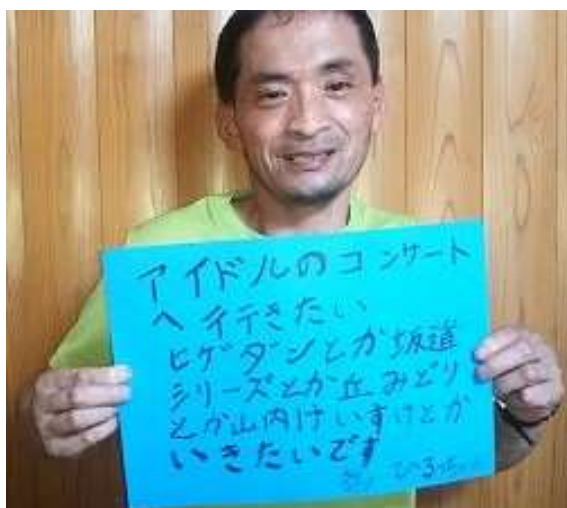 アイドルのコンサート
へ行きたい
ヒゲダンとか坂道
シリーズとか丘みどり
とか山内けいすけとか
いきたいです